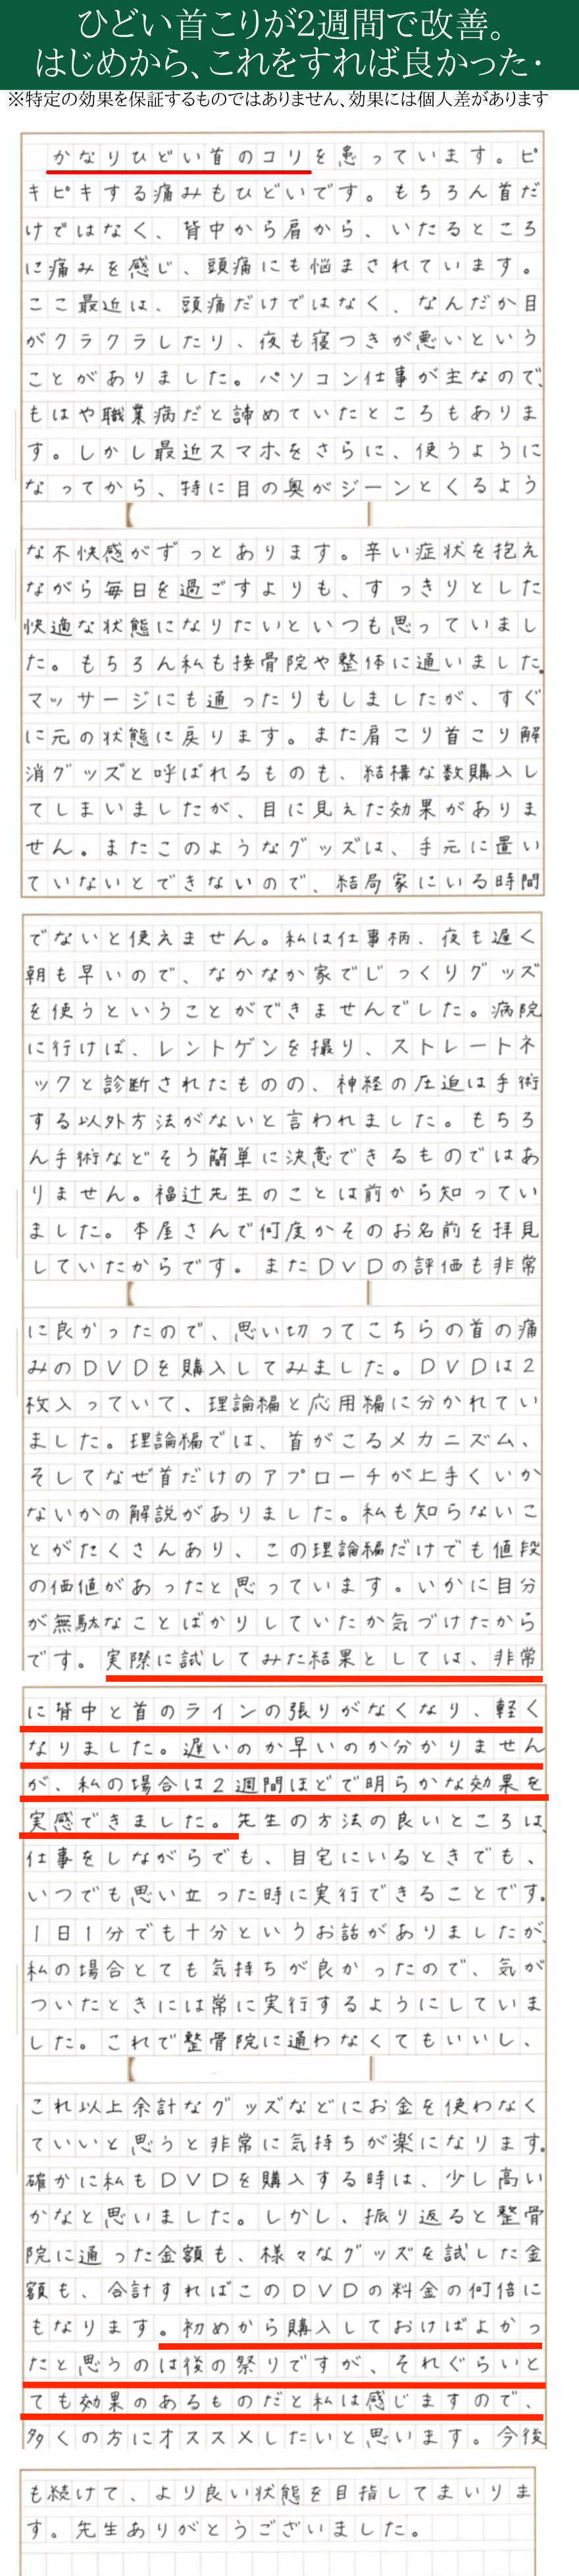 ひどい首こりが2週間で改善。
はじめから、これをすれば良かった・
※特定の効果を保証するものではありません、効果には個人差があります
かなりひどい首のコリを患っています。ピ
キピキする痛みもひどいです。もちろん首だ
けではなく、背中から肩から、いたるところ
に痛みを感じ、頭痛にも悩まされています。
ここ最近は、頭痛だけではなく、なんだか目
がクラクラしたり、夜も寝つきが悪いという
ことがありました。パソコン仕事が主なので、
もはや職業病だと諦めていたところもありま
す。しかし最近スマホをさらに、使うように
なってから、特に目の奥がジーンとくるよう
な不快感がずっとあります。辛い症状を抱え
ながら毎日を過ごすよりも、すっきりとした
快適な状態になりたいといつも思っていまし
た。もちろん私も接骨院や整体に通いました。
マッサージにも通ったりもしましたが、すぐ
に元の状態に戻ります。また肩こり首こり解
消グッズと呼ばれるものも、結構な数購入し
てしまいましたが、目に見えた効果がありま
せん。またこのようなグッズは、手元に置い
ていないとできないので、結局家にいる時間
でないと使えません。私は仕事柄、夜も遅く
朝も早いので、なかなか家でじっくりグッズ
を使うということができませんでした。病院
に行けば、レントゲンを撮り、ストレートネ
ックと診断されたものの、神経の圧迫は手術
する以外方法がないと言われました。もちろ
ん手術などそう簡単に決意できるものではあ
りません。福辻先生のことは前から知ってい
ました。本屋さんで何度かそのお名前を拝見
していたからです。またDVDの評価も非常
に良かったので、思い切ってこちらの首の痛
みのDVDを購入してみました。DVDは2
枚入っていて、理論編と応用編に分かれてい
ました。理論編では、首がこるメカニズム、
そしてなぜ首だけのアプローチが上手くいか
ないかの解説がありました。私も知らないこ
とがたくさんあり、この理論編だけでも値段
の価値があったと思っています。いかに自分
が無駄なことばかりしていたか気づけたから
です。実際に試してみた結果としては、非常
に背中と首のラインの張りがなくなり、軽く
なりました。遅いのか早いのか分かりません
が、私の場合は2週間ほどで明らかな効果を
実感できました。先生の方法の良いところは、
仕事をしながらでも、自宅にいるときでも、
いつでも思い立った時に実行できることです。
1日1分でも十分というお話がありましたが、
私の場合とても気持ちが良かったので、気が
ついたときには常に実行するようにしていま
した。これで整骨院に通わなくてもいいし、
これ以上余計なグッズなどにお金を使わなく
ていいと思うと非常に気持ちが楽になります。
確かに私もDVDを購入する時は、少し高い
かなと思いました。しかし、振り返ると整骨
院に通った金額も、様々なグッズを試した金
額も、合計すればこのDVDの料金の何倍に
もなります。初めから購入しておけばよかっ
たと思うのは後の祭りですが、それぐらいと
ても効果のあるものだと私は感じますので、
多くの方にオススメしたいと思います。今後
も続けて、より良い状態を目指してまいりま
す。先生ありがとうございました。